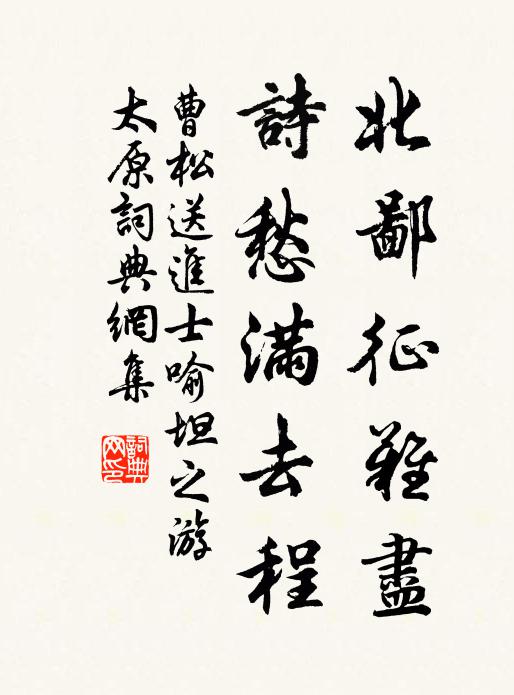 北鄙征難盡
詩愁滿去程
曹松送進士喻坦之游
太原詞典網集
詞典網印